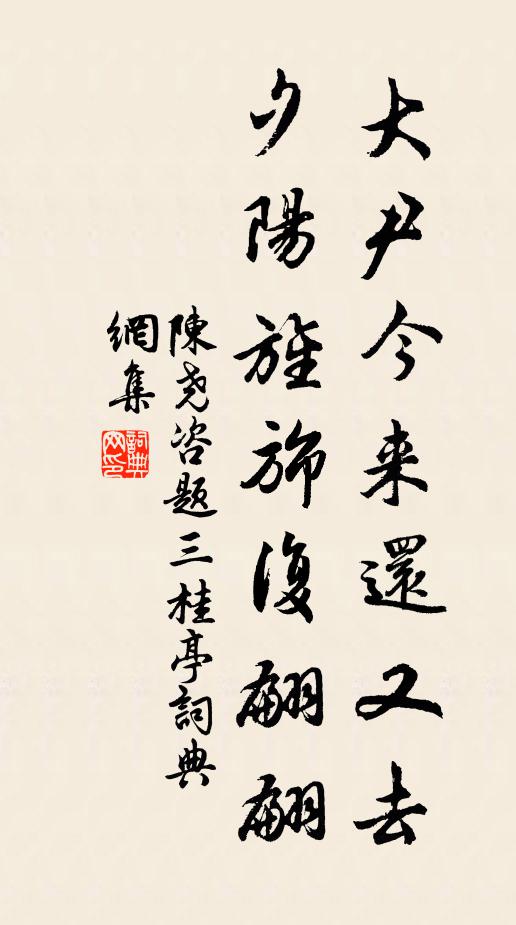 大尹今来還又去
夕陽旌旆復翩翩
陳堯咨題三桂亭詞典
網集
詞典網印